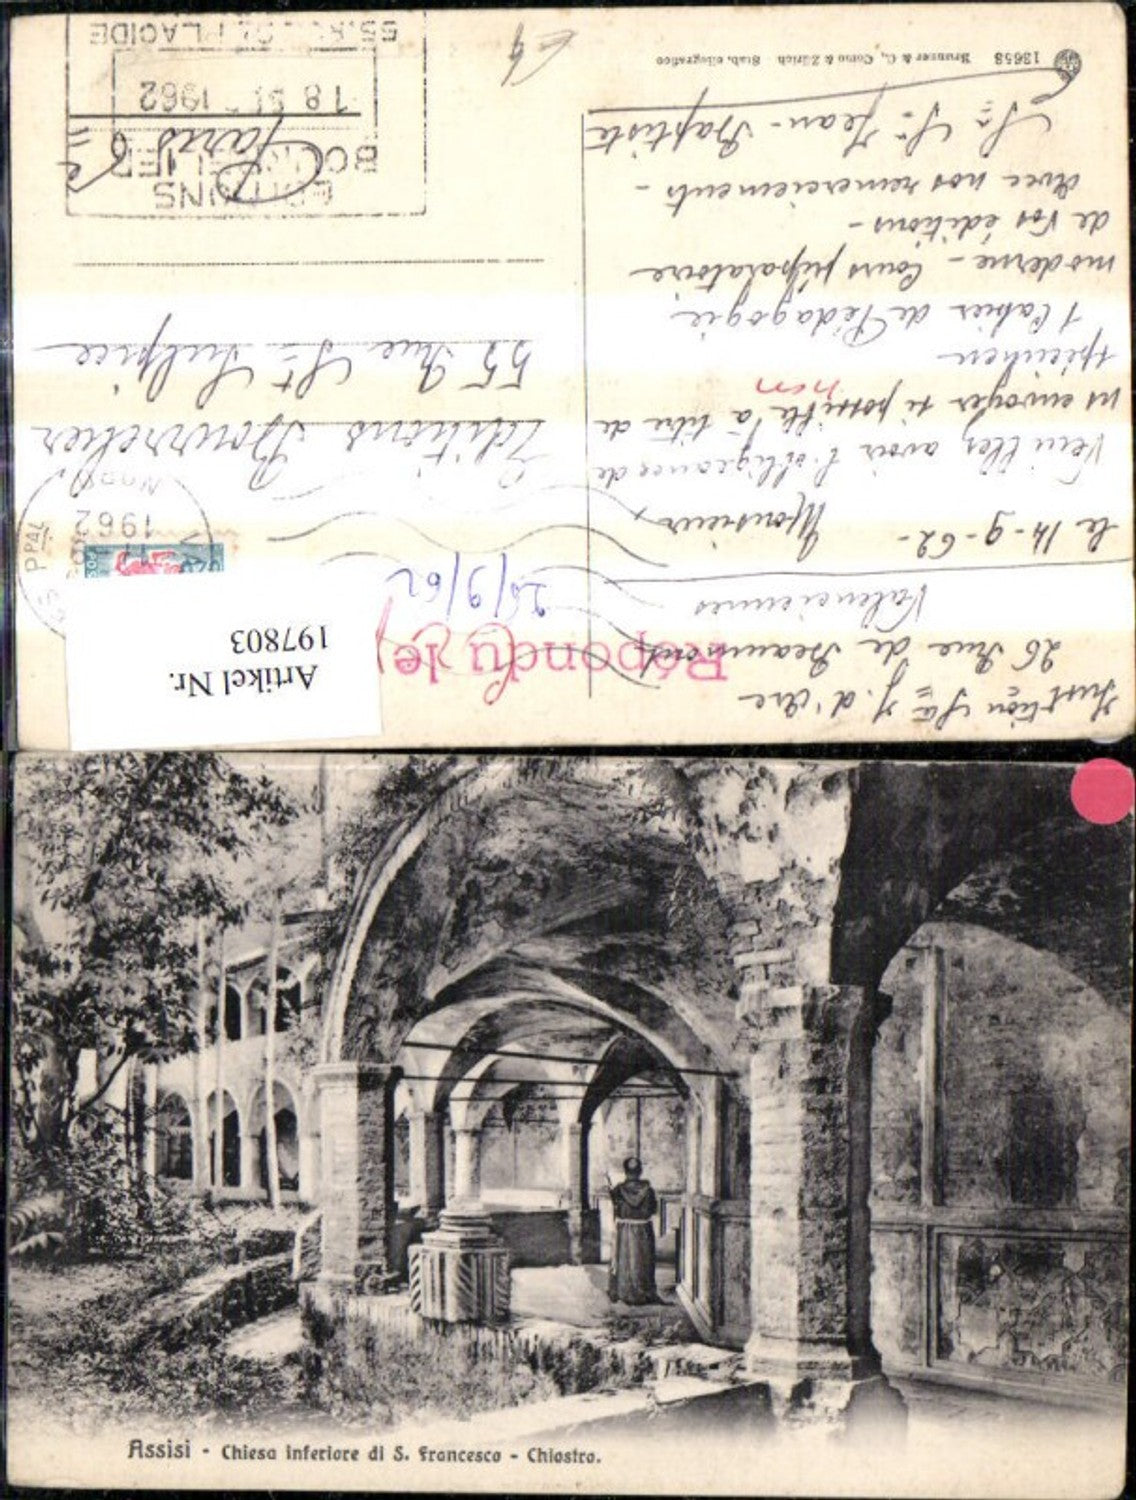 Institution Ste J. d'Arc
26 Rue de Beaumont
Valenciennes
le 14-9-62-
Monsieur,
Veuillez avoir l'obligeance de
ns envoyer si possible à titre de
non
spécimen
1 Cahier de Pédagogie
moderne - Cours préparatoire
de vos éditions -
Avec nos remerciements -
Sr St Jean-Baptiste
13653 Brunner & C., Como & Zürich Stab. eliografico
Répondu le
26/9/62
Artikel Nr.
197803
PPAL
1962
NORD
Editions Bourrelier
55 Rue St Sulpice
Paris 6e
EDITIONS
BOURRELIER
18 SEP 1962
55, R. ST PLACIDE
Assisi - Chiesa inferiore di S. Francesco - Chiostro.